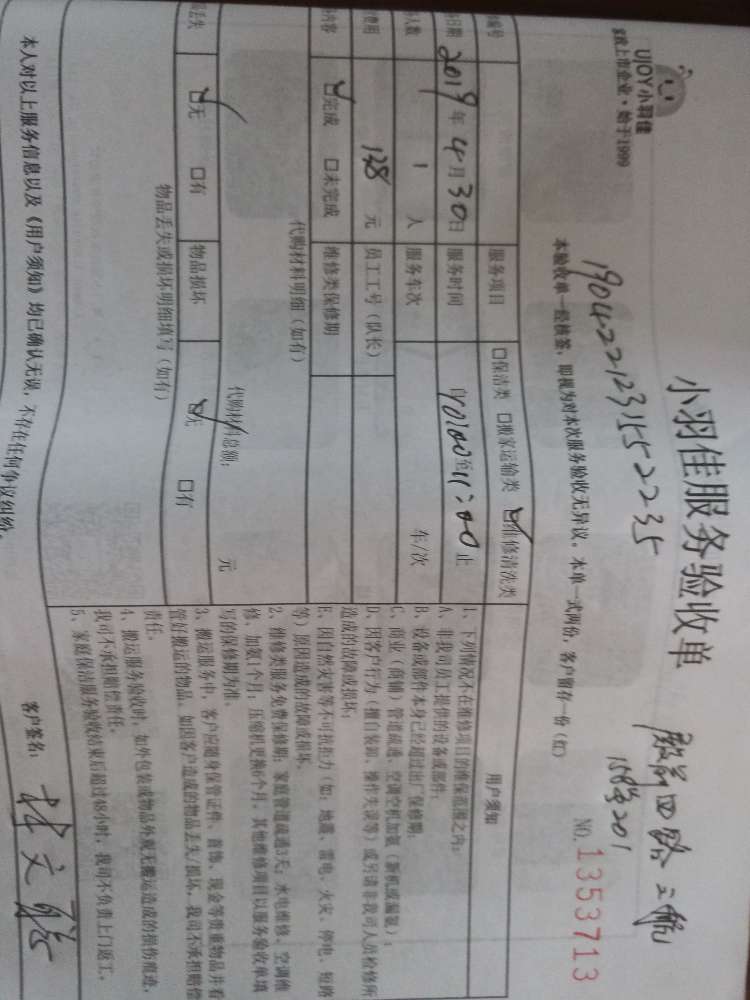 UJOY小羽佳
家政上市企业·始于1999
小羽佳服务验收单
NO.1353713
1904221231552235
本验收单一经核签，即视为对本次服务验收无异议。本单一式两份，客户留存一份（红）
编号
服务项目
保洁类 搬家运输类 维修清洗类
日期 2019年4月30日
服务时间
自 10:00至11:00止
人数 1人
服务车次
车/次
费用 128元
员工工号（队长）
内容 完成 未完成
维修类保修期
代购材料明细（如有）
代购材料总额： 元
丢失 无 有
物品损坏 无 有
物品丢失或损坏明细填写（如有）
用户须知
1、下列情况不在维修项目的维保范围之内：
A、非我司员工提供的设备或部件；
B、设备或部件本身已经超过出厂保修期；
C、商业（商铺）管道疏通、空调空机加氨（新机或漏氨）；
D、因客户行为（擅自装卸、操作失误等）或另请非我司人员检修所
造成的故障或损坏；
E、因自然灾害等不可抗拒力（如：地震、雷电、火灾、停电、短路
等）原因造成的故障或损坏。
2、维修类服务免费保修期：家庭管道疏通3天；水电维修、空调维
修、加氨1个月；压缩机更换6个月。其他维修项目以服务验收单填
写的保修期为准。
3、搬运服务中，客户应随身保管证件、首饰、现金等贵重物品并看
管好搬运的物品。如因客户造成的物品丢失/损坏，我司不承担赔偿
责任。
4、搬运服务验收时，如外包装或物品外观无搬运造成的损伤痕迹，
我司不承担赔偿责任。
5、家庭保洁服务验收结束后超过48小时，我司不负责上门返工。
本人对以上服务信息以及《用户须知》均已确认无误，不存在任何争议纠纷。
客户签名：